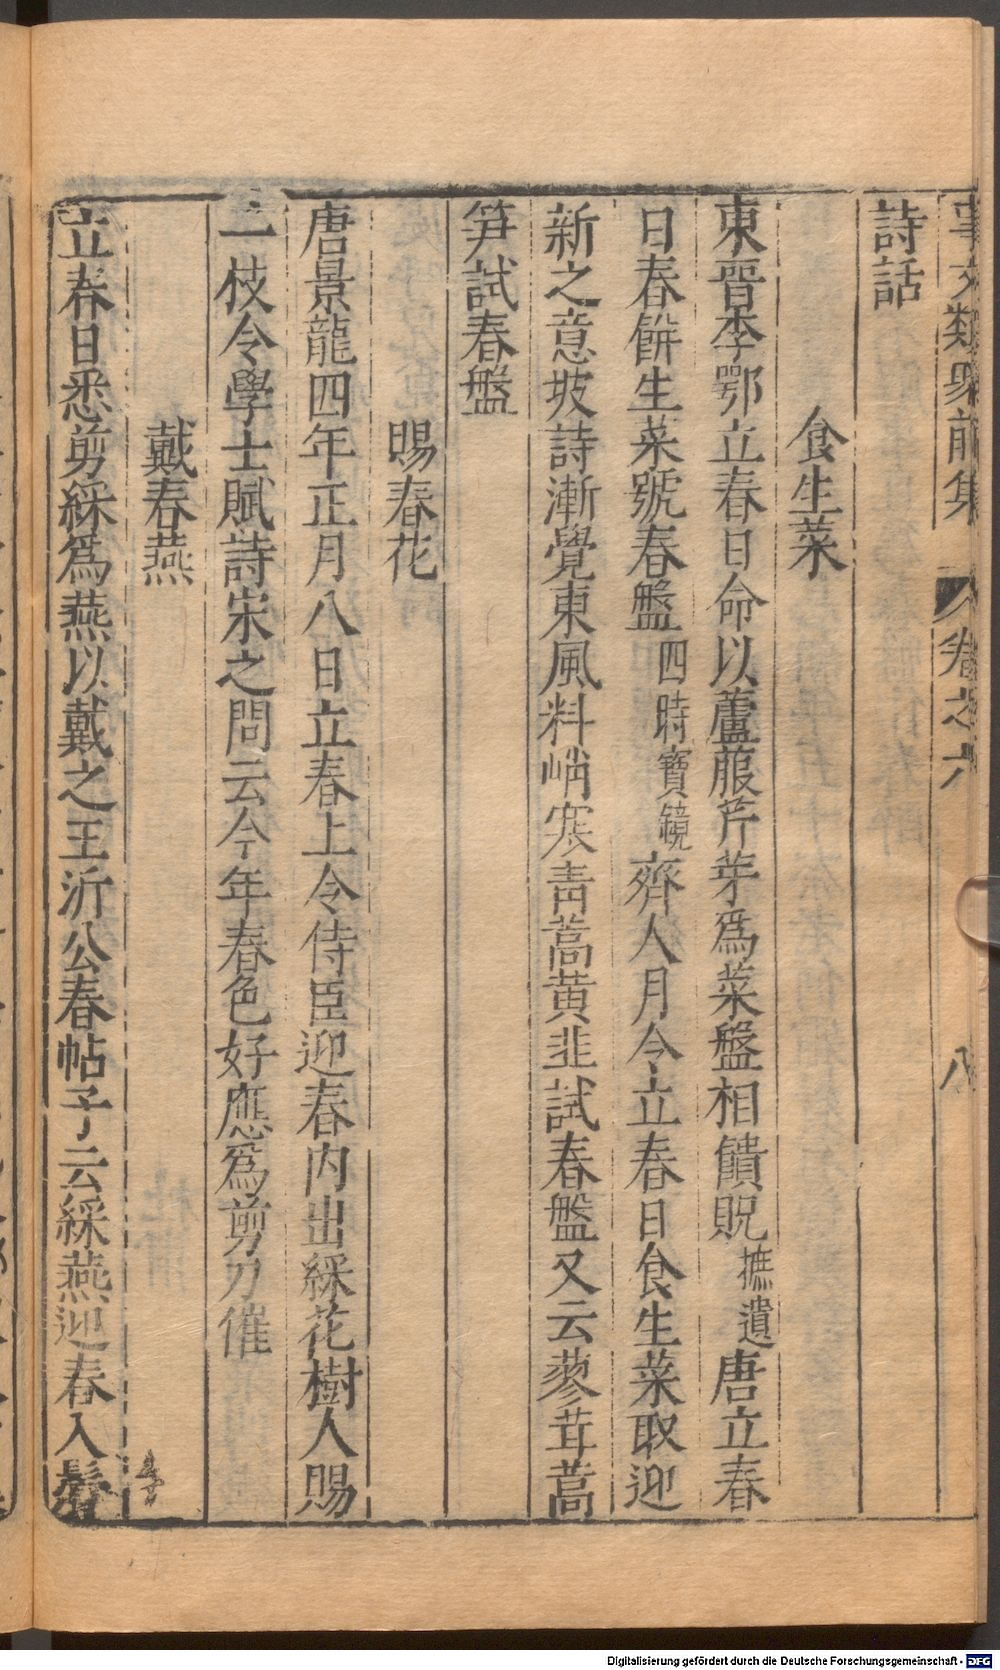 事文類聚前集 卷之六 八
詩話
食生菜
東晉李鄂立春日命以蘆菔芹芽爲菜盤相饋貺摭遺唐立春
日春餅生菜號春盤四時寶鏡齊人月令立春日食生菜取迎
新之意坡詩漸覺東風料峭寒青蒿黄韭試春盤又云蓼茸蒿
笋試春盤
賜春花
唐景龍四年正月八日立春上令侍臣迎春内出綵花樹人賜
一枝令學士賦詩宋之問云今年春色好應爲剪刀催
戴春燕
立春日悉剪綵爲燕以戴之王沂公春帖子云綵燕迎春入鬢
Digitalisierung gefördert durch die Deutsche Forschungsgemeinschaft - DFG